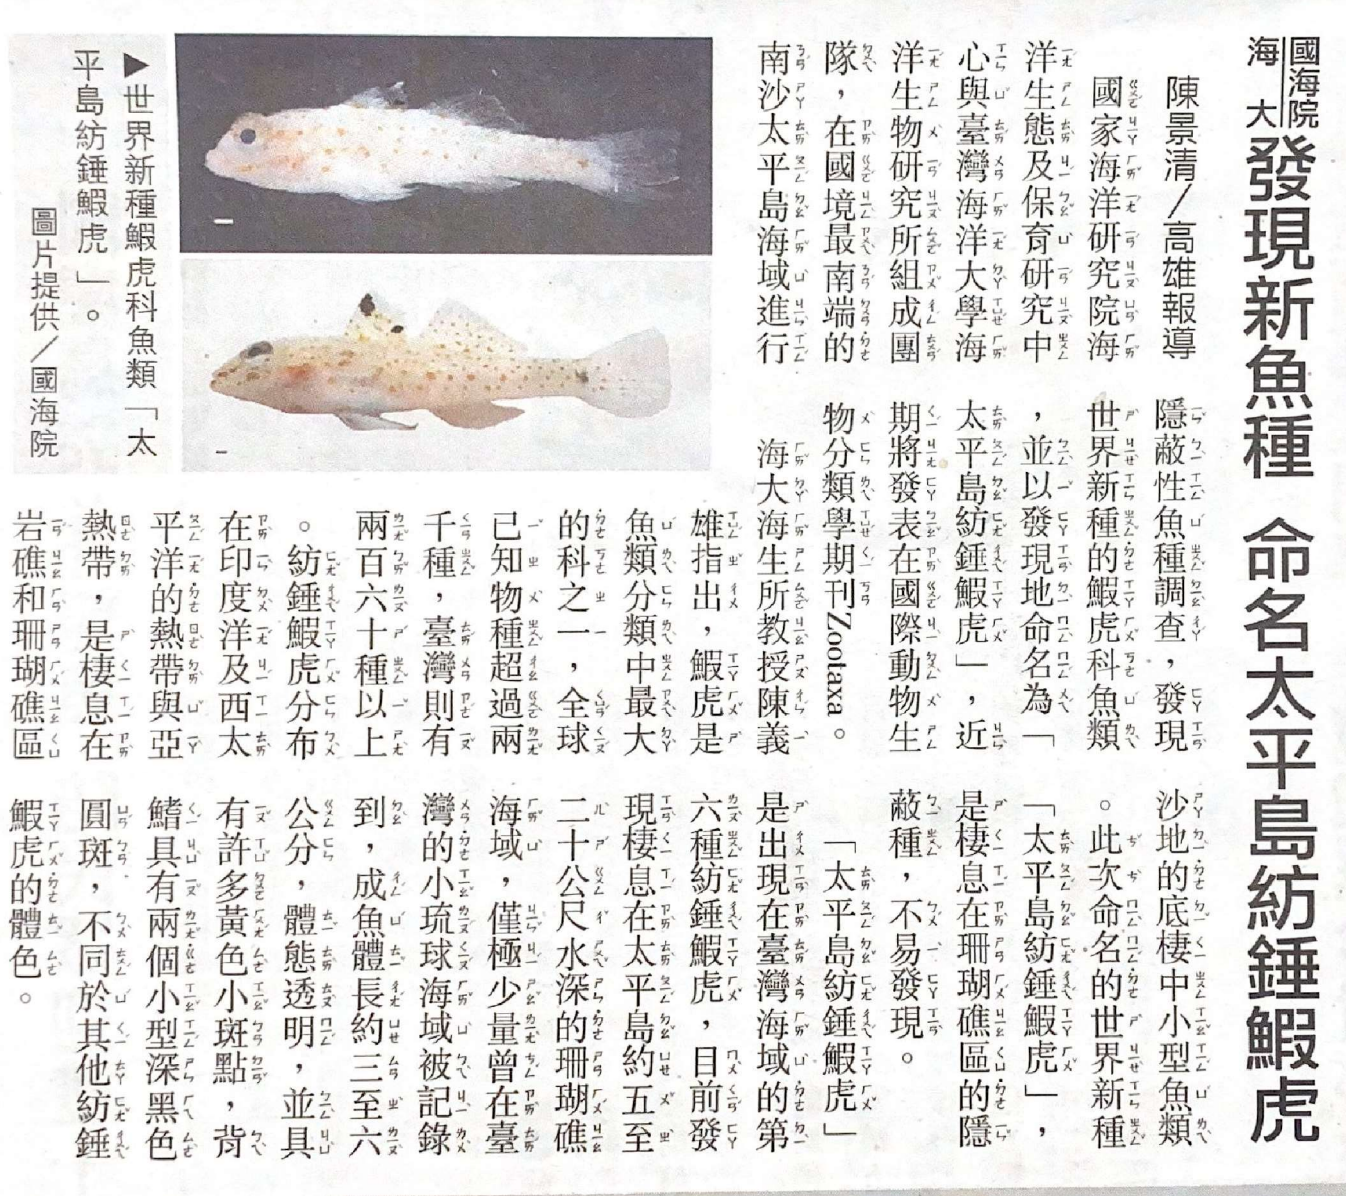 國海院
海大
發現新魚種 命名太平島紡錘鰕虎
陳景清／高雄報導
國家海洋研究院海
洋生態及保育研究中
心與臺灣海洋大學海
洋生物研究所組成團
隊，在國境最南端的
南沙太平島海域進行
隱蔽性魚種調查，發現
世界新種的鰕虎科魚類
，並以發現地命名為「
太平島紡錘鰕虎」，近
期將發表在國際動物生
物分類學期刊Zootaxa。
海大海生所教授陳義
雄指出，鰕虎是
魚類分類中最大
的科之一，全球
已知物種超過兩
千種，臺灣則有
兩百六十種以上
。紡錘鰕虎分布
在印度洋及西太
平洋的熱帶與亞
熱帶，是棲息在
岩礁和珊瑚礁區
沙地的底棲中小型魚類
。此次命名的世界新種
「太平島紡錘鰕虎」，
是棲息在珊瑚礁區的隱
蔽種，不易發現。
「太平島紡錘鰕虎」
是出現在臺灣海域的第
六種紡錘鰕虎，目前發
現棲息在太平島約五至
二十公尺水深的珊瑚礁
海域，僅極少量曾在臺
灣的小琉球海域被記錄
到，成魚體長約三至六
公分，體態透明，並具
有許多黃色小斑點，背
鰭具有兩個小型深黑色
圓斑，不同於其他紡錘
鰕虎的體色。
▶世界新種鰕虎科魚類「太
平島紡錘鰕虎」。
圖片提供／國海院